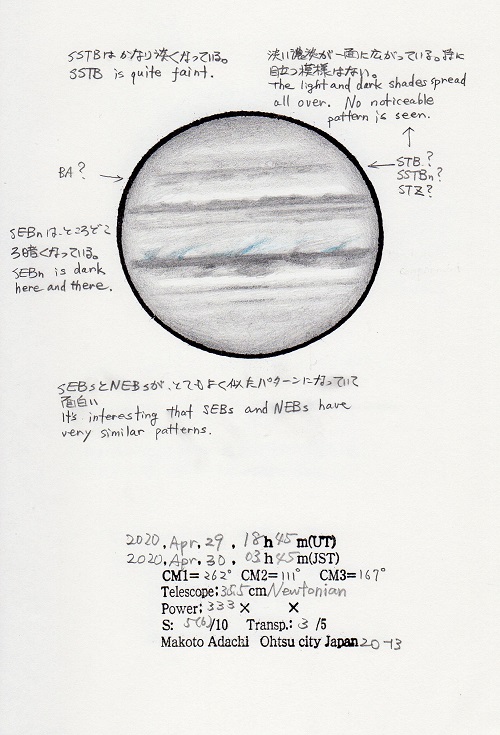 SSTBはかなり淡くなっている。
SSTB is quite faint.
淡い濃淡が一面に広がっている。特に
目立つ模様はない。
The light and dark shades spread
all over. No noticeable
pattern is seen.
BA?
STB.?
SSTBn?
STZ?
SEBnは、ところどこ
ろ暗くなっている。
SEBn is dark
here and there.
SEBsとNEBsが、とてもよく似たパターンになっていて
面白い
It's interesting that SEBs and NEBs have
very similar patterns.
2020, Apr, 29, 18h 45m(UT)
2020, Apr, 30, 03h 45m(JST)
CM1=262° CM2=111° CM3=167°
Telescope: 35.5cm Newtonian
Power: 333× ×
S: 5(6)/10 Transp.: 3 /5
Makoto Adachi Ohtsu city Japan 20-13